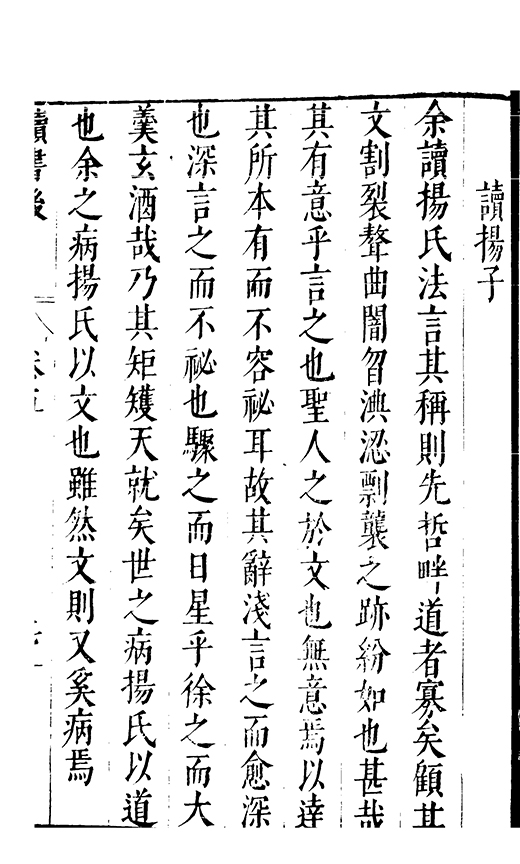 讀揚子
余讀揚氏法言其稱則先哲畔道者寡矣顧其
文割裂聱曲闇曶淟涊剽襲之跡紛如也甚哉
其有意乎言之也聖人之於文也無意焉以達
其所本有而不容祕耳故其辭淺言之而愈深
也深言之而不祕也驟之而日星乎徐之而大
羹玄酒哉乃其矩矱天就矣世之病揚氏以道
也余之病揚氏以文也雖然文則又奚病焉
讀書後